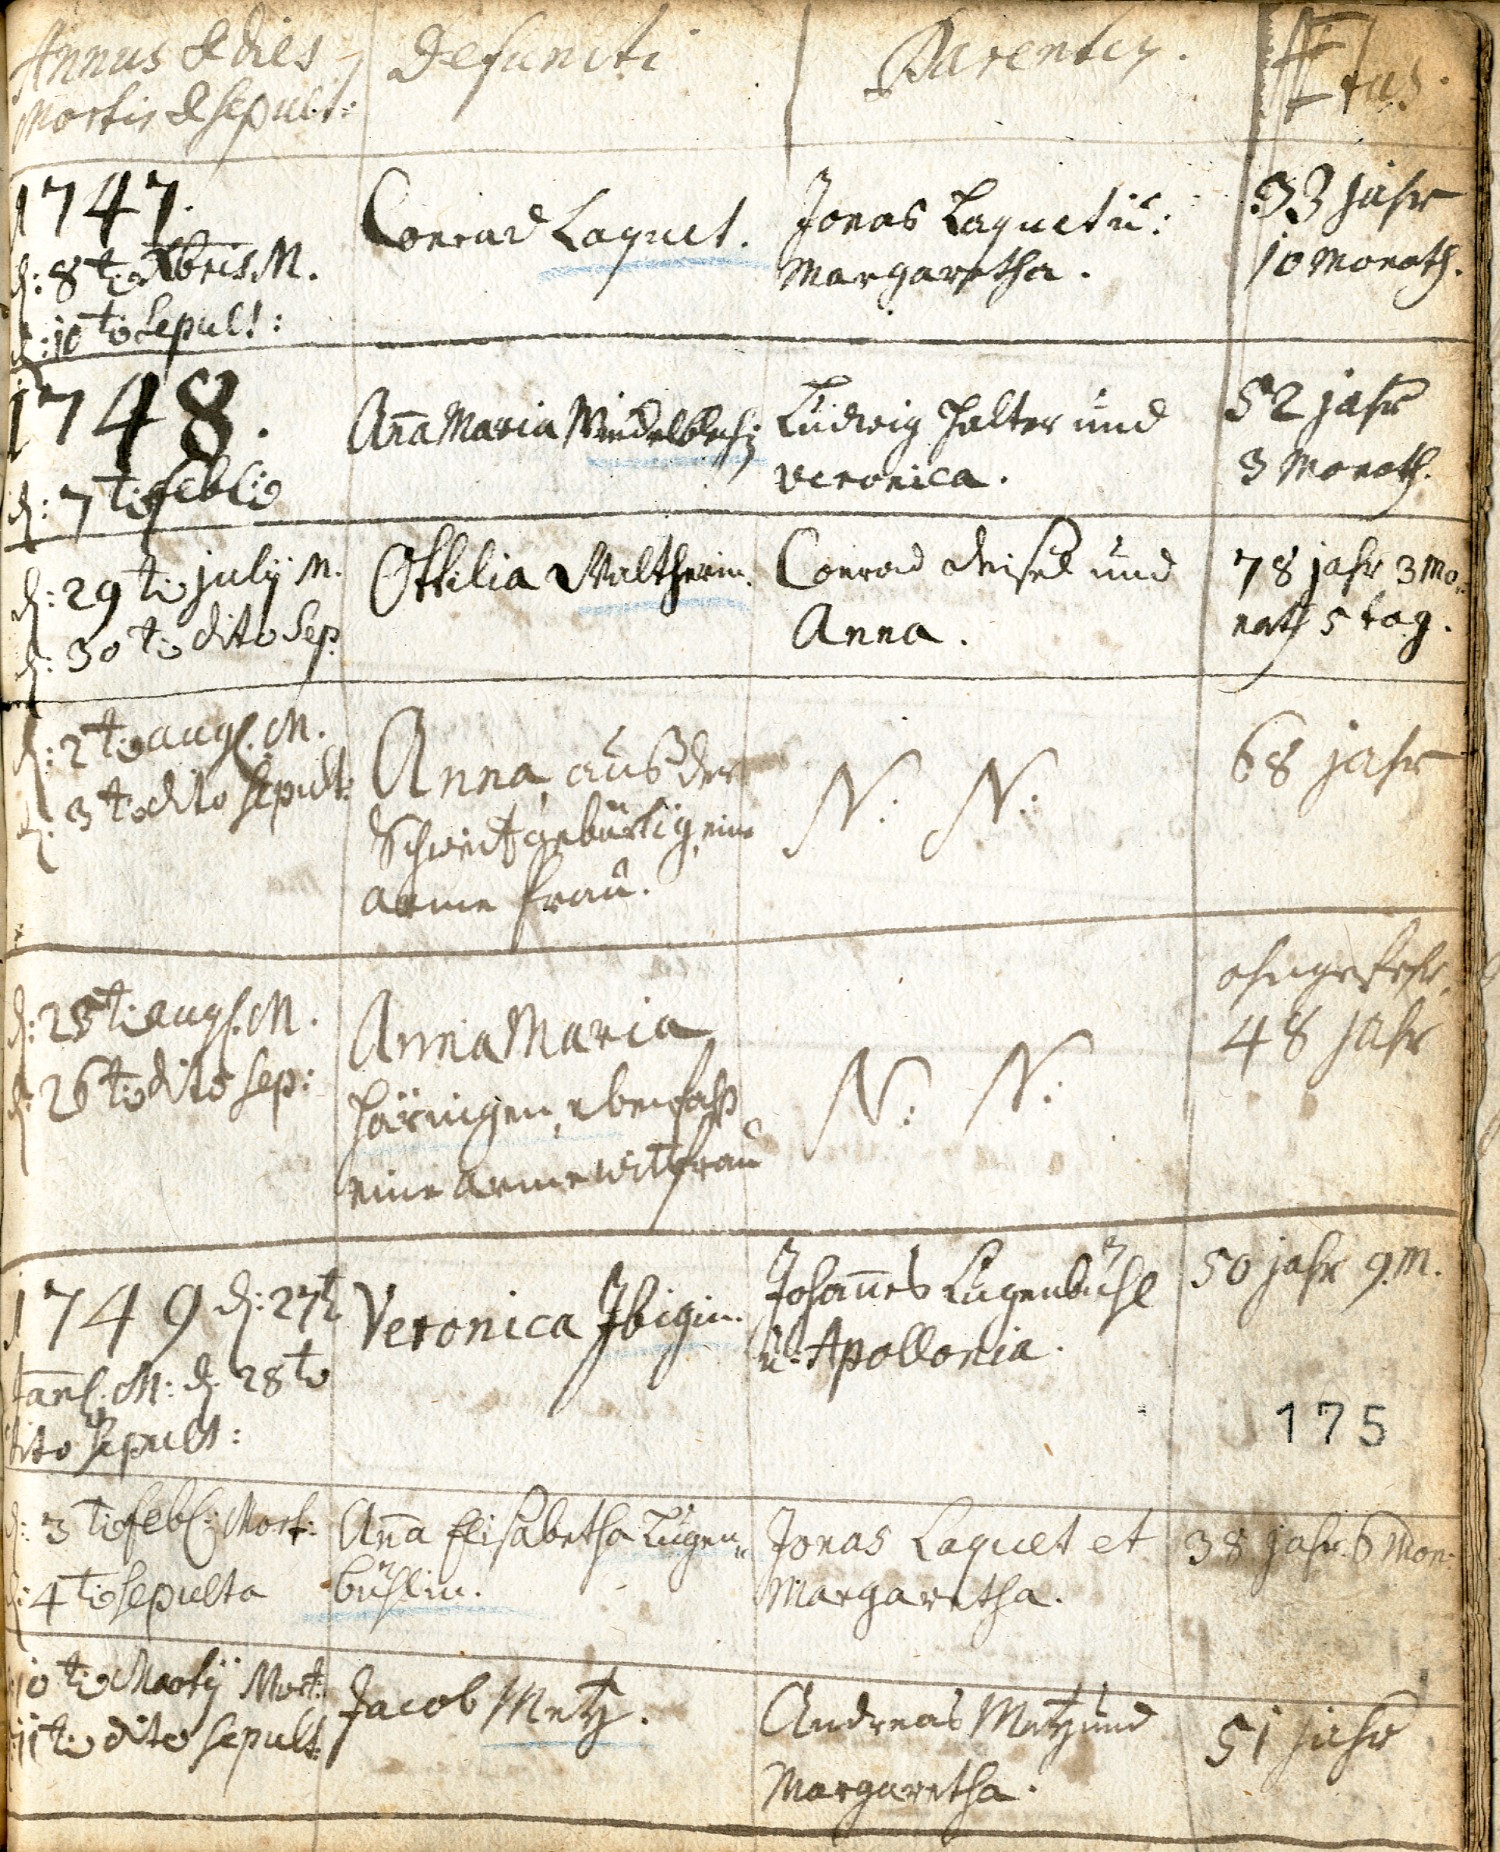 Annus & dies
Mortis & Sepult:
Defuncti
Parentes.
Ætas.
1747.
d: 8t: Xbris M.
d: 10t: Sepult:
Conrad Laquet.
Jonas Laquet ü:
Margaretha.
33 jahr
10 Monath.
1748.
d: 7t: febr:
Aña Maria Windelblechin
Ludwig Halter und
Veronica.
52 jahr
3 Monath.
d: 29t: july M.
d: 30t: dito Sep.
Ottilia Waltherin.
Conrad Meisel und
Anna.
78 jahr 3 Mo-
nath 5 tag.
d: 2t: aug. M.
d: 3t: dito Sepult:
Anna, auß der
Schweitz gebürtig, eine
arme frau.
N: N:
68 jahr
d: 25t: aug. M.
d: 26t: dito Sep:
Anna Maria
Häringen, ebenfalß
eine arme witfrau
N: N:
ohngefehr
48 jahr
1749 d: 27t
Jañ. M: d. 28t:
dito Sepult:
Veronica Jbigin.
Johañes Lugenbühl
ü: Apollonia.
50 jahr 9 M.
175
d: 3t: feb: Mort:
d: 4t: Sepulta
Aña Elisabetha Lügen-
bühlin.
Jonas Laquet et
Margaretha.
38 jahr 6 Mon.
10t: Martÿ Mort:
11t: dito Sepult:
Jacob Metz.
Andreas Metz und
Margaretha.
51 jahr